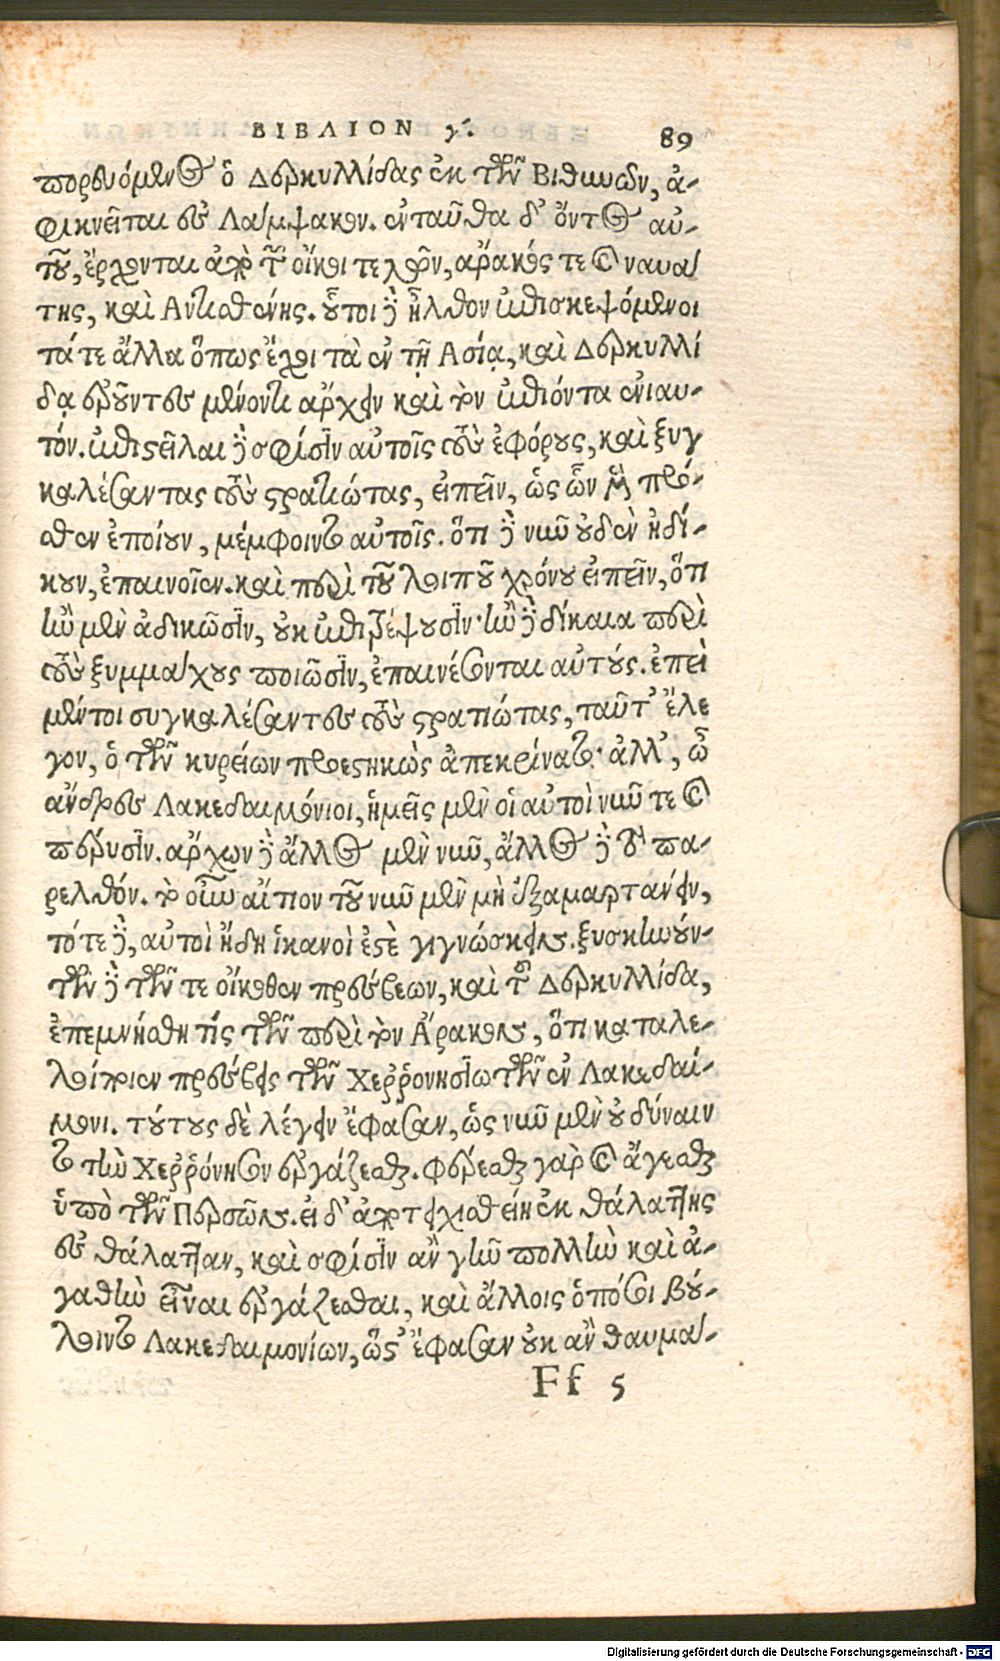 ΒΙΒΛΙΟΝ γ΄. 89
πορευόμενος ὁ Δερκυλλίδας ἐκ τῶν Βιθυνῶν, ἀ-
φικνεῖται εἰς Λάμψακον. ἐνταῦθα δ' ὄντος αὐ-
τοῦ, ἔρχονται ἀπὸ τῶν οἴκοι τελῶν, ἄρακός τε καὶ ναυά
της, καὶ Αντισθένης. οὗτοι δὲ ἦλθον ἐπισκεψόμενοι
τά τε ἄλλα ὅπως ἔχοι τὰ ἐν τῇ Ασίᾳ, καὶ Δερκυλλί
δᾳ ἐροῦντες μένοντι ἄρχειν καὶ τὸν ἐπιόντα ἐνιαυ-
τόν. ἐπιστεῖλαι δὲ σφίσιν αὐτοῖς τοὺς ἐφόρους, καὶ ξυγ
καλέσαντας τοὺς στρατιώτας, εἰπεῖν, ὡς ὧν μὲν πρό-
σθεν ἐποίουν, μέμφοιντο αὐτοῖς. ὅτι δὲ νῦν οὐδὲν ἠδί-
κουν, ἐπαινοῖεν. καὶ περὶ τοῦ λοιποῦ χρόνου εἰπεῖν, ὅτι
ἢν μὲν ἀδικῶσιν, οὐκ ἐπιτρέψουσιν· ἢν δὲ δίκαια περὶ
τοὺς ξυμμάχους ποιῶσιν, ἐπαινέσονται αὐτούς. ἐπεὶ
μέντοι συγκαλέσαντες τοὺς στρατιώτας, ταῦτ' ἔλε
γον, ὁ τῶν κυρείων προεστηκὼς ἀπεκρίνατο· ἀλλ', ὦ
ἄνδρες Λακεδαιμόνιοι, ἡμεῖς μὲν οἱ αὐτοὶ νῦν τε καὶ
πέρυσιν. ἄρχων δὲ ἄλλος μὲν νῦν, ἄλλος δὲ τὸ πα-
ρελθόν. τὸ οὖν αἴτιον τοῦ νῦν μὲν μὴ ἐξαμαρτάνειν,
τότε δὲ, αὐτοὶ ἤδη ἱκανοί ἐστὲ γιγνώσκειν. ξυσκηνούν-
των δὲ τῶν τε οἴκοθεν πρέσβεων, καὶ τοῦ Δερκυλλίδα,
ἐπεμνήσθη τὶς τῶν περὶ τὸν Ἄρακον, ὅτι καταλε-
λοίποιεν πρέσβεις τῶν Χεῤῥονησίων τῶν ἐν Λακεδαί-
μονι. τούτους δὲ λέγειν ἔφασαν, ὡς νῦν μὲν οὐ δύναιν
το τὴν Χεῤῥόνησον ἐργάζεσθαι. φέρεσθαι γὰρ καὶ ἄγεσθαι
ὑπὸ τῶν Περσῶν. εἰ δ' ἀποτειχισθείη ἐκ θαλάττης
εἰς θάλατταν, καὶ σφίσιν ἂν γῆν πολλὴν καὶ ἀ-
γαθὴν εἶναι ἐργάζεσθαι, καὶ ἄλλοις ὁπόσοι βού-
λοιντο Λακεδαιμονίων, ὥστ' ἔφασαν οὐκ ἂν θαυμά-
Ff 5
Digitalisierung gefördert durch die Deutsche Forschungsgemeinschaft - DFG